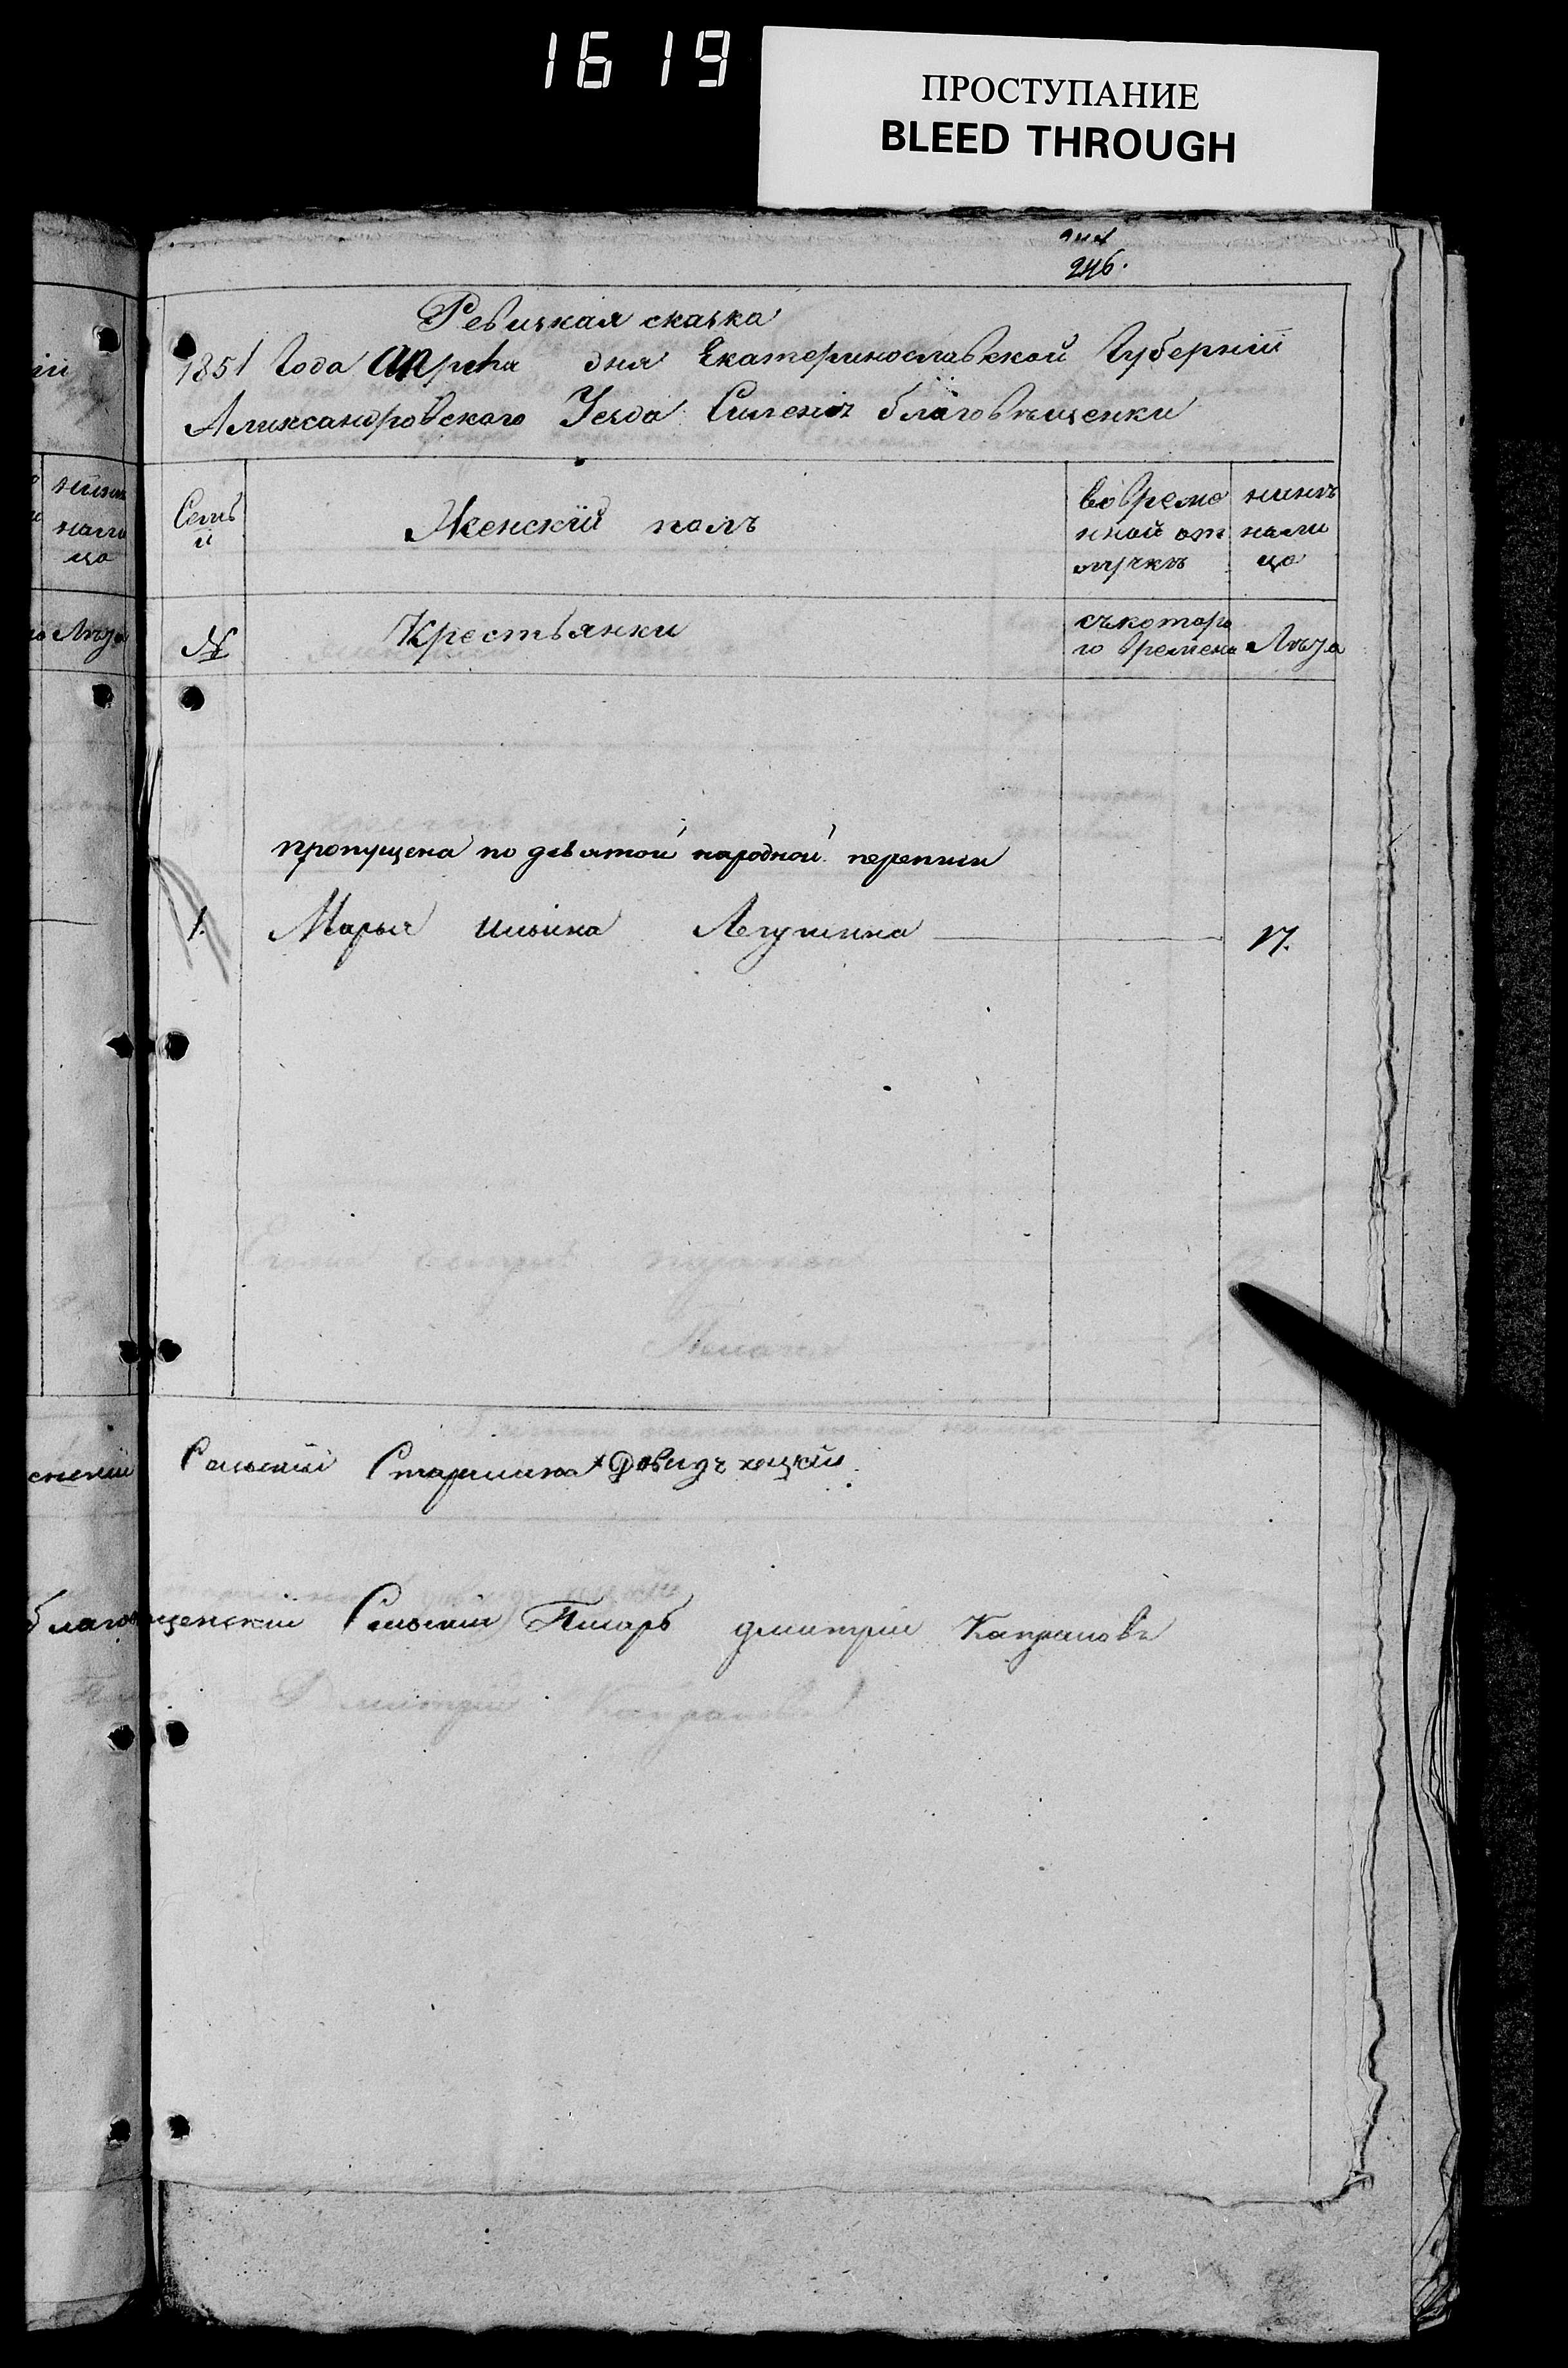 1619
ПРОСТУПАНИЕ
BLEED THROUGH
246.
Ревизкая сказка
1851 Года Апреля дня Екатеринославской Губернии
Аликсандровского Уезда Силениъ благовѣщенки
Семьи
Женский полъ
во времен
ной от
лучкѣ
нинѣ
нали
цо
№
Крестьянки
съкотора
го времена
Лѣта
пропущена по девятой народной переписи
1. Марья Ильина Легушина 17.
Сельский Старшина Довидъ
благовещенский Сельский Писарь дмитрий Капрановъ